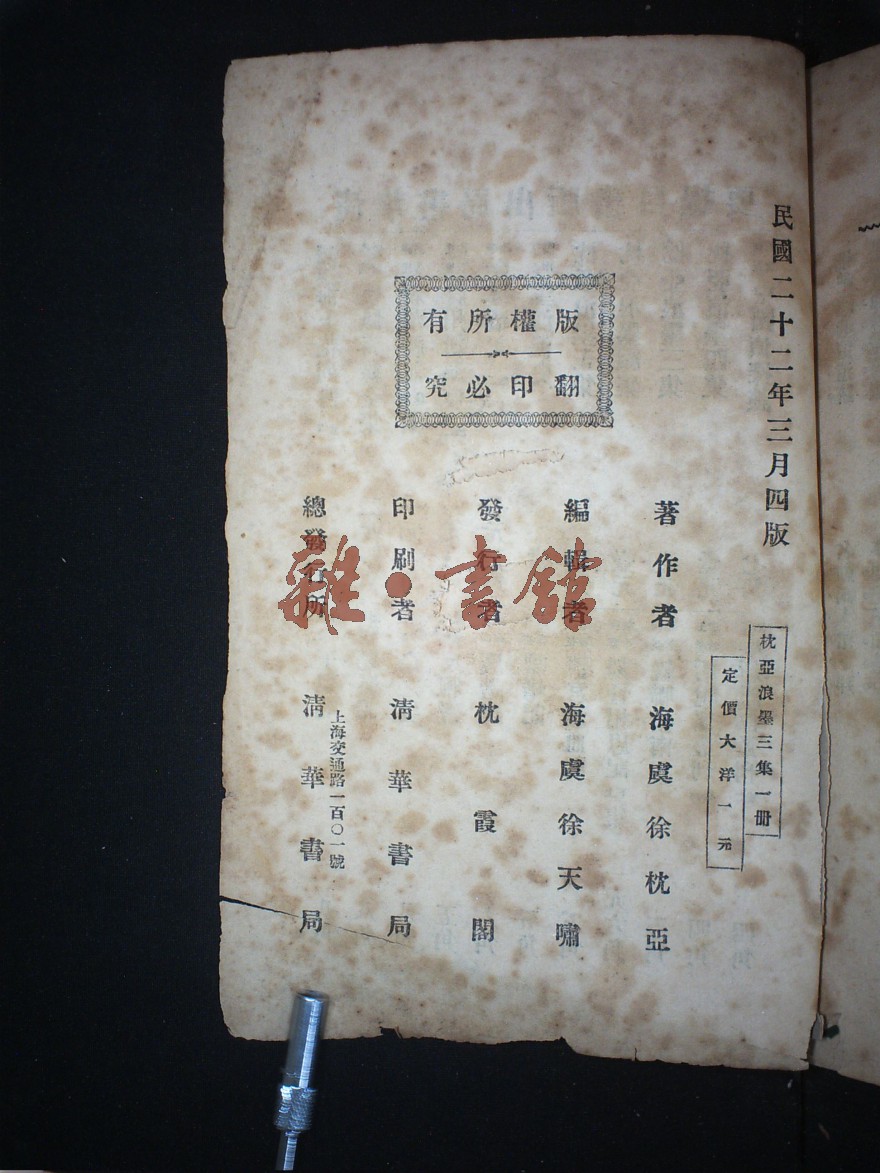 民國二十二年三月四版
枕亞浪墨三集一册
定價大洋一元
版權所有
翻印必究
著作者 海虞徐枕亞
編輯者 海虞徐天嘯
發行者 枕霞閣
印刷者 清華書局
上海交通路一百〇一號
總發行所 清華書局
雜·書館